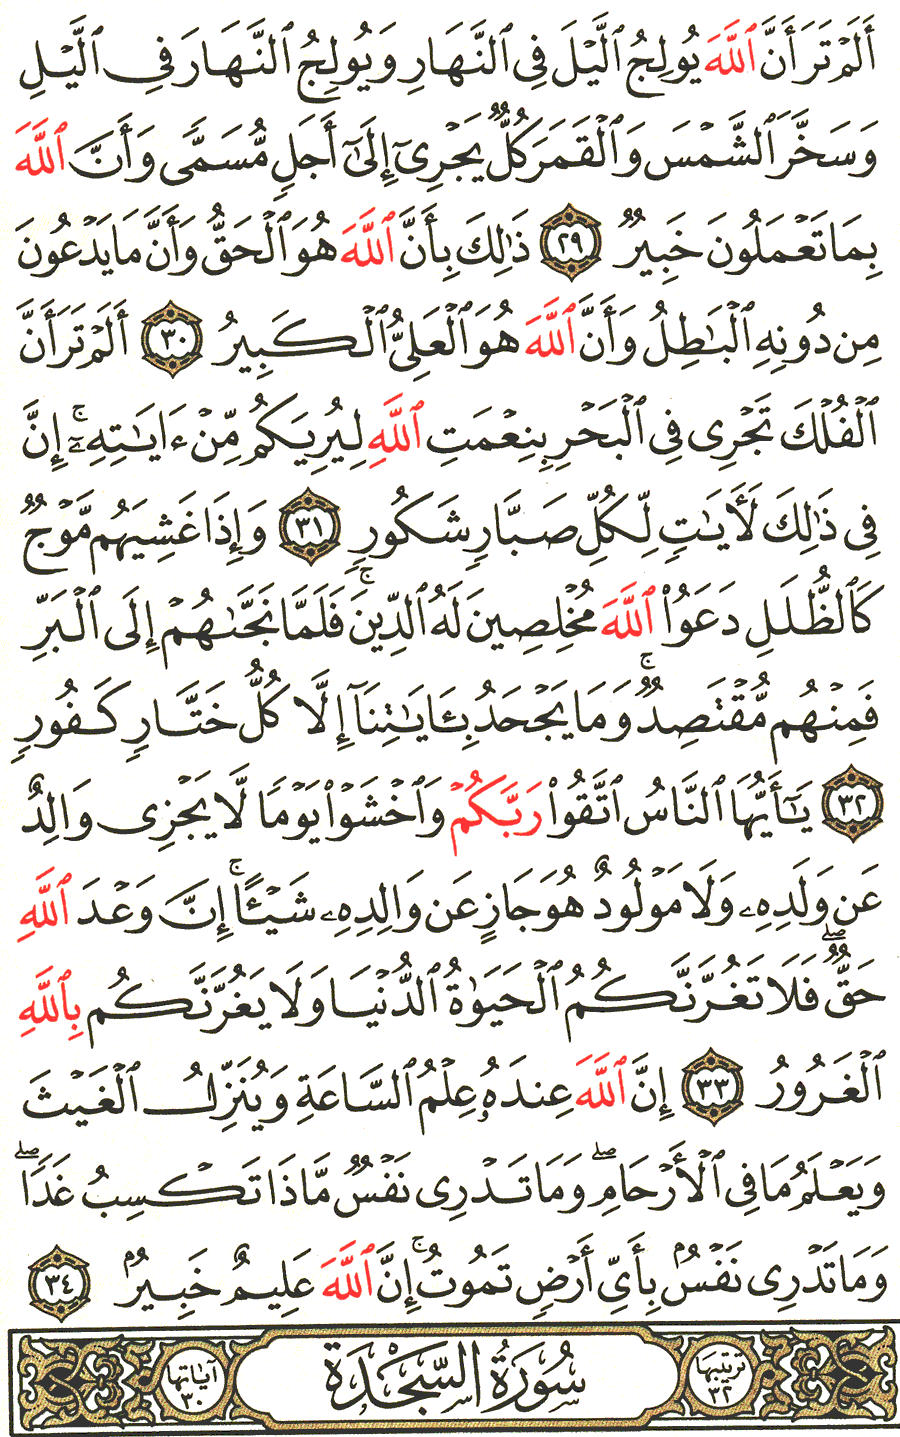 أَلَمۡ تَرَ أَنَّ ٱللَّهَ يُولِجُ ٱلَّيۡلَ فِي ٱلنَّهَارِ وَيُولِجُ ٱلنَّهَارَ فِي ٱلَّيۡلِ
وَسَخَّرَ ٱلشَّمۡسَ وَٱلۡقَمَرَ كُلّٞ يَجۡرِيٓ إِلَىٰٓ أَجَلٖ مُّسَمّٗى وَأَنَّ ٱللَّهَ
بِمَا تَعۡمَلُونَ خَبِيرٞ ٢٩ ذَٰلِكَ بِأَنَّ ٱللَّهَ هُوَ ٱلۡحَقُّ وَأَنَّ مَا يَدۡعُونَ
مِن دُونِهِ ٱلۡبَٰطِلُ وَأَنَّ ٱللَّهَ هُوَ ٱلۡعَلِيُّ ٱلۡكَبِيرُ ٣٠ أَلَمۡ تَرَ أَنَّ
ٱلۡفُلۡكَ تَجۡرِي فِي ٱلۡبَحۡرِ بِنِعۡمَتِ ٱللَّهِ لِيُرِيَكُم مِّنۡ ءَايَٰتِهِۦٓۚ إِنَّ
فِي ذَٰلِكَ لَأٓيَٰتٖ لِّكُلِّ صَبَّارٖ شَكُورٖ ٣١ وَإِذَا غَشِيَهُم مَّوۡجٞ
كَٱلظُّلَلِ دَعَوُاْ ٱللَّهَ مُخۡلِصِينَ لَهُ ٱلدِّينَۚ فَلَمَّا نَجَّىٰهُمۡ إِلَى ٱلۡبَرِّ
فَمِنۡهُم مُّقۡتَصِدٞۚ وَمَا يَجۡحَدُ بِـَٔايَٰتِنَآ إِلَّا كُلُّ خَتَّارٖ كَفُورٖ
٣٢ يَٰٓأَيُّهَا ٱلنَّاسُ ٱتَّقُواْ رَبَّكُمۡ وَٱخۡشَوۡاْ يَوۡمٗا لَّا يَجۡزِي وَالِدٌ
عَن وَلَدِهِۦ وَلَا مَوۡلُودٌ هُوَ جَازٍ عَن وَالِدِهِۦ شَيۡـًٔاۚ إِنَّ وَعۡدَ ٱللَّهِ
حَقّٞۖ فَلَا تَغُرَّنَّكُمُ ٱلۡحَيَوٰةُ ٱلدُّنۡيَا وَلَا يَغُرَّنَّكُم بِٱللَّهِ
ٱلۡغَرُورُ ٣٣ إِنَّ ٱللَّهَ عِندَهُۥ عِلۡمُ ٱلسَّاعَةِ وَيُنَزِّلُ ٱلۡغَيۡثَ
وَيَعۡلَمُ مَا فِي ٱلۡأَرۡحَامِۖ وَمَا تَدۡرِي نَفۡسٞ مَّاذَا تَكۡسِبُ غَدٗاۖ
وَمَا تَدۡرِي نَفۡسُۢ بِأَيِّ أَرۡضٖ تَمُوتُۚ إِنَّ ٱللَّهَ عَلِيمٌ خَبِيرُۢ ٣٤
ترتيبها ٣٢ سُورَةُ السَّجْدَةِ آياتها ٣٠